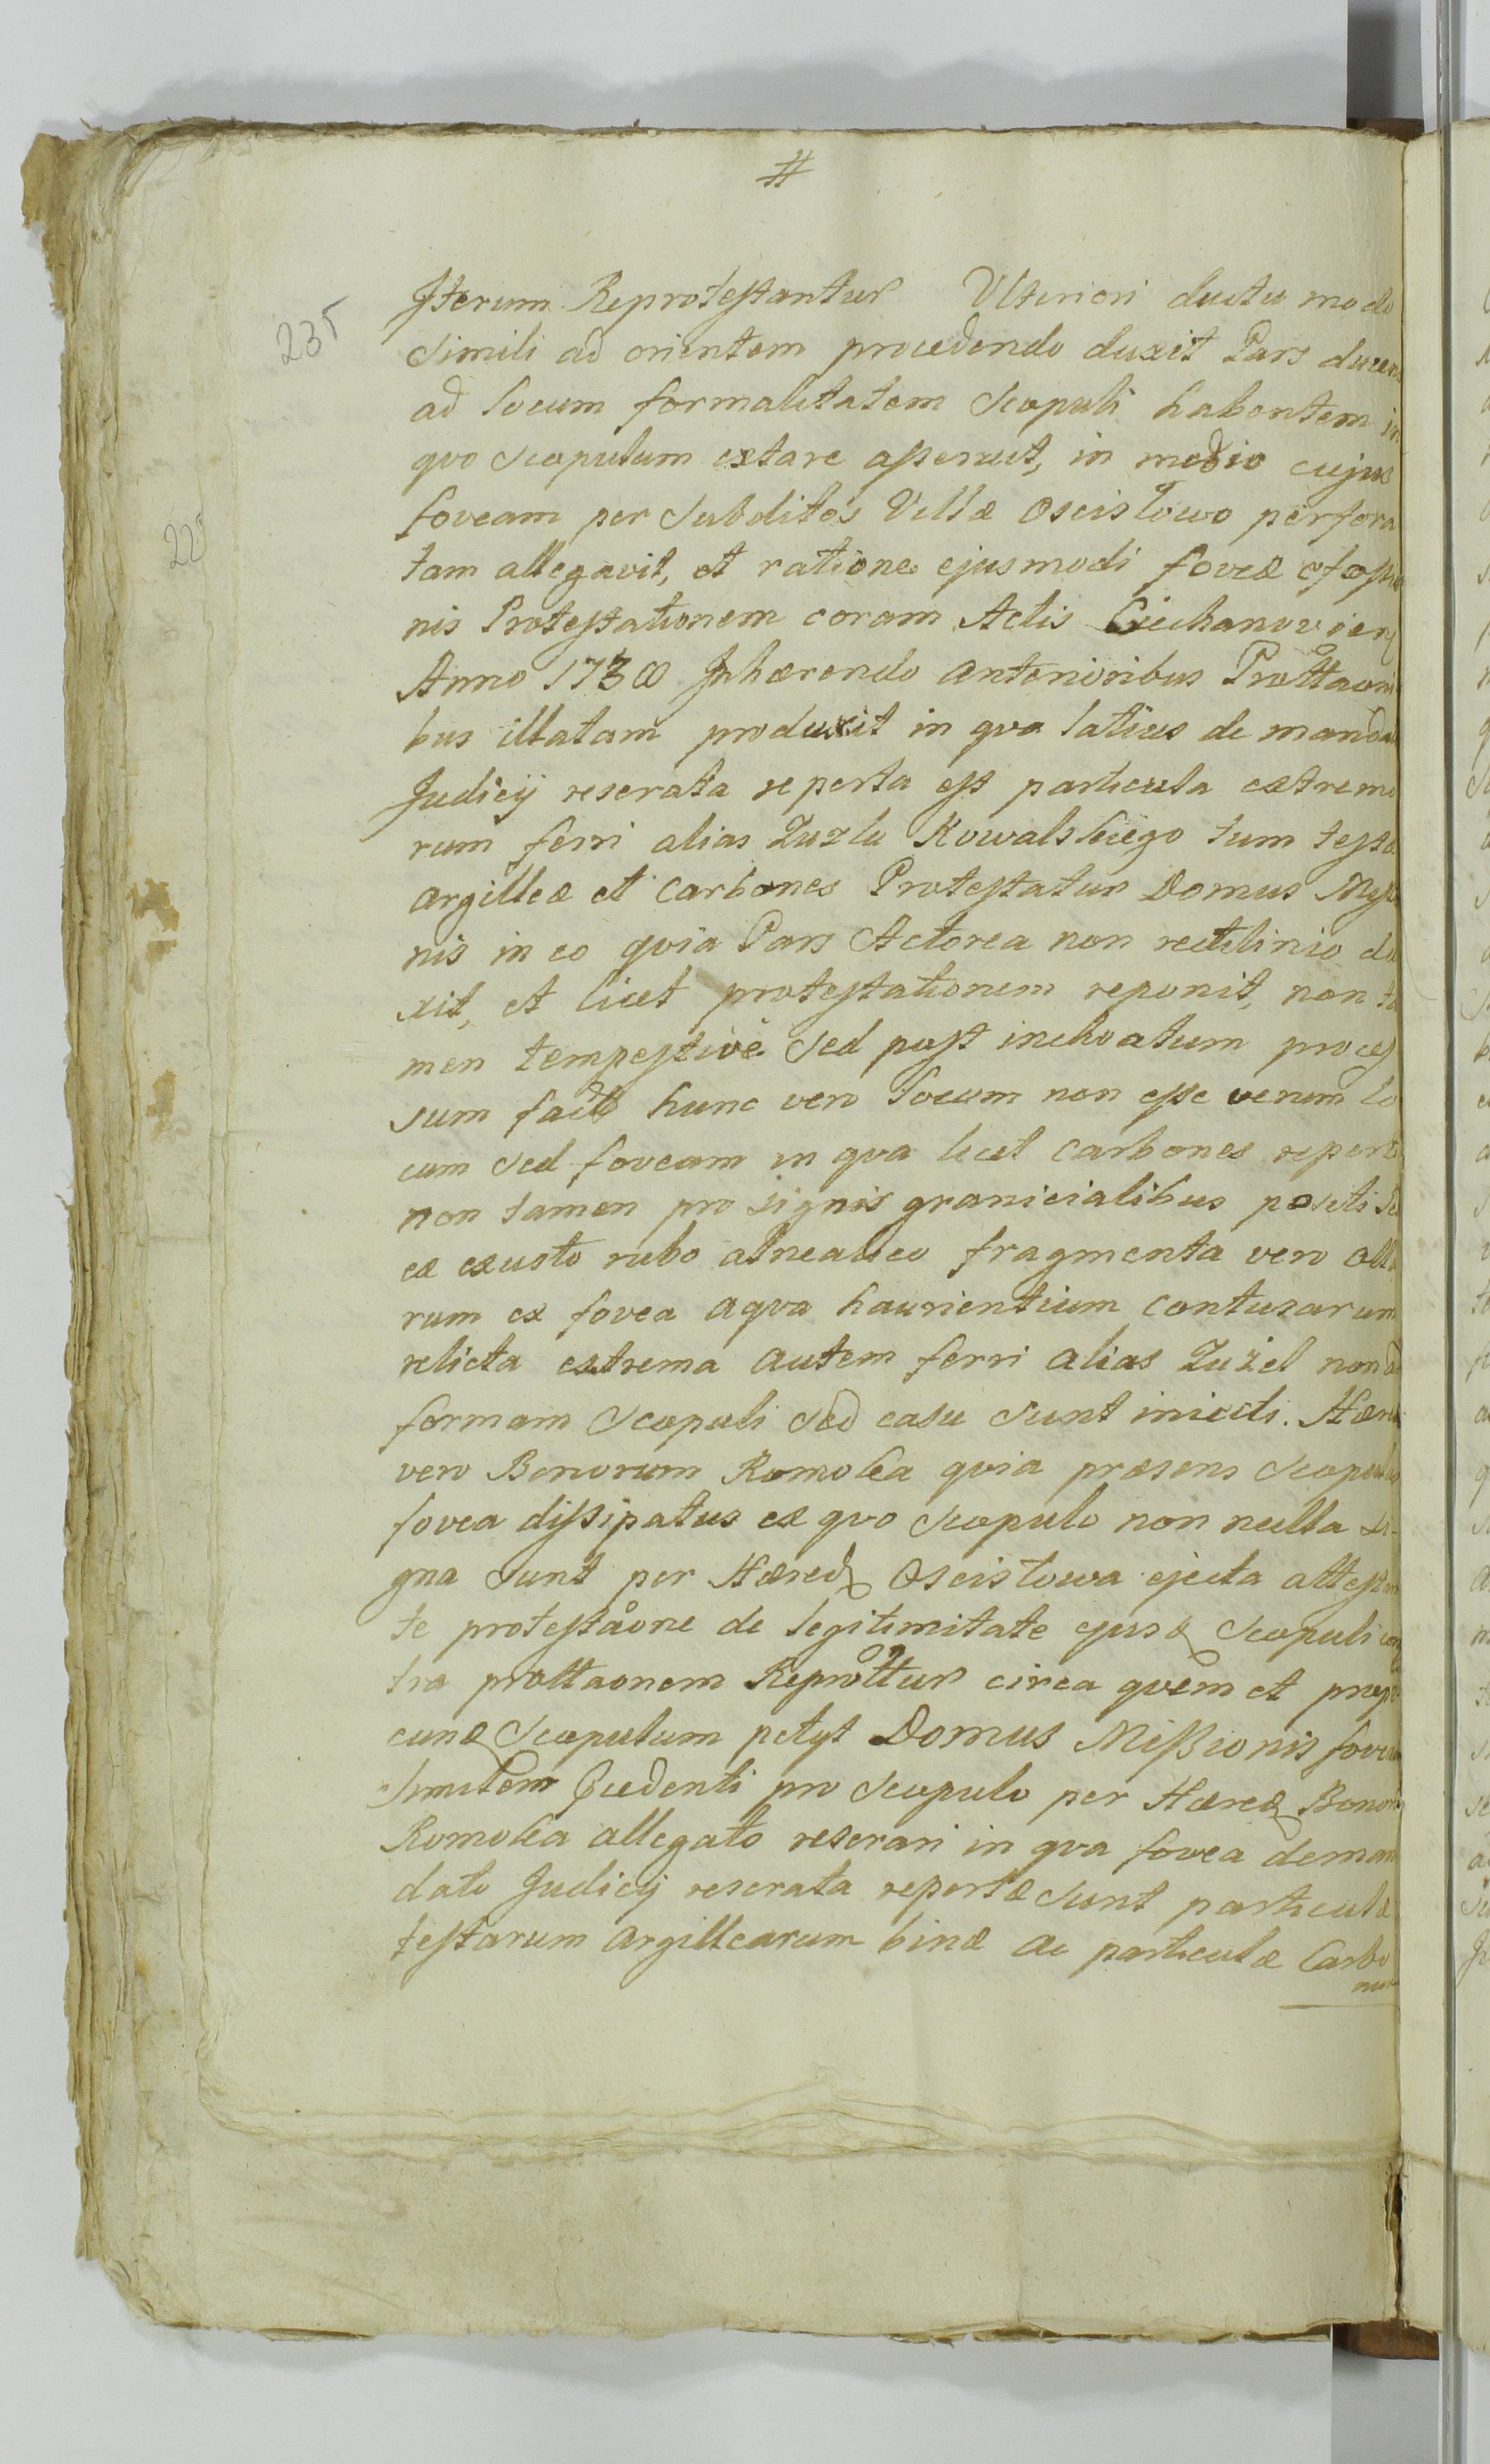 #
235
Iterum Reprotestantur Ulteriori ductu modo
simili ad orientem procedendo duxit Pars ducens
ad locum formalitatem Scopuli habentem in
quo Scopulum extare asseruit, in medio cujus
foveam per Subditos Villæ Oscisłowo perfora
tam allegavit, et ratione ejusmodi foveæ effossio
nis Protestationem coram Actis Ciechanovien
Anno 1738 Inhærendo anterioribus Prottaoni
bus illatam produxit in qva latius de manda
Judicij reserata reperta est particula extremo
rum ferri alias Zuzlu Kowalskiego tum testa
argillea et Carbones Protestatur Domus Missio
nis in eo qvia Pars Actorea non rectilinio du
xit, et licet protestationem reponit, non ta
men tempestivè Sed post inchoatum proces
sum facto hunc vero locum non esse verum lo
cum Sed foveam in qva licet Carbones reperti
non tamen pro signis granicialibus positi Sed
ex exusto rubo alneatico fragmenta vero olla
rum ex fovea aqva haurientium Contusarum
relicta extrema autem ferri alias Zużel non ad
formam Scopuli Sed casu Sunt iniecti. Hæred
vero Bonorum Romoka qvia præsens Scopulus
fovea dissipatus ex qvo Scopulo non nulla Si-
gna Sunt per Hæred Oscisłowa ejecta attestan
te protestaone de legitimitate ejusd Scopuli con
tra prottaonem Reprottur circa qvem et prope
eund Scopulum petyt Domus Missionis foveam
Similem Præcedenti pro Scopulo per Hæred Bonor
Romoka allegato reserari in qva fovea deman
dato Judicij reserata repertæ Sunt particulæ
testarum argillearum binæ ac particulæ Carbo
num